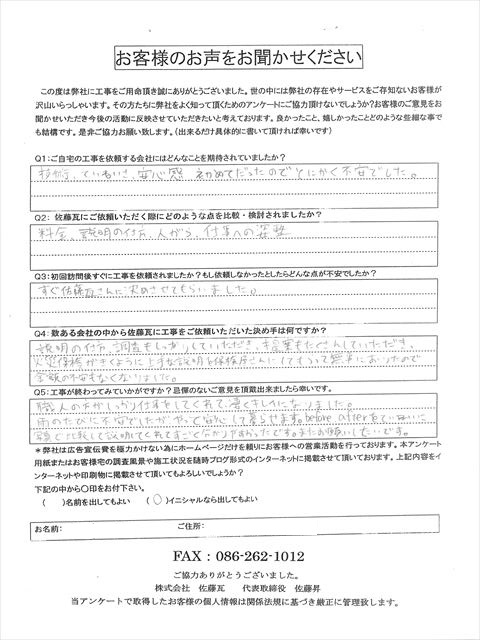 お客様のお声をお聞かせください
この度は弊社に工事をご用命頂き誠にありがとうございました。世の中には弊社の存在やサービスをご存知ないお客様が
沢山いらっしゃいます。その方たちに弊社をよく知って頂くためのアンケートにご協力頂けないでしょうか?お客様のご意見をお
聞かせいただき今後の活動に反映させていただきたいと考えております。良かったこと、嬉しかったことどのような些細な事で
も結構です。是非ご協力お願い致します。(出来るだけ具体的に書いて頂ければ幸いです)
Q1:ご自宅の工事を依頼する会社にはどんなことを期待されていましたか?
技術、ていねいさ、安心感 初めてだったのでとにかく不安でした。
Q2: 佐藤瓦にご依頼いただく際にどのような点を比較・検討されましたか?
料金、説明の仕方、人がら、仕事への姿勢
Q3:初回訪問後すぐに工事を依頼されましたか?もし依頼しなかったとしたらどんな点が不安でしたか?
すぐ佐藤瓦さんに決めさせてもらいました。
Q4:数ある会社の中から佐藤瓦に工事をご依頼いただいた決め手は何ですか?
説明の仕方、調査もしっかりしていただき、提案もたくさんしていただき、
火災保険がきくように上手な説明を保険屋さんにして
金額の不安もなくなりました。
Q5:工事が終わってみていかがですか?忌憚のないご意見を頂戴出来ましたら幸いです。
職人の方がしっかり仕事をしてくれて凄くきれいになりました。
雨のたびに不安でしたがやっと安心して暮らせます。before afterを
比較して説明してくれてすごく分かりやすかったです。またお願いしたいです。
*弊社は広告宣伝費を極力かけない為にホームページだけを頼りにお客様への営業活動を行っております。本アンケート
用紙またはお客様宅の調査風景や施工状況を随時ブログ形式のインターネットに掲載させて頂いております。上記内容をイ
ンターネットや印刷物に掲載させて頂いてもよろしいでしょうか?
下記の中から〇印をお付下さい。
( )名前を出してもよい (〇)イニシャルなら出してもよい
お名前: ご住所:
FAX:086-262-1012
ご協力ありがとうございました。
株式会社 佐藤瓦 代表取締役 佐藤昇
当アンケートで取得したお客様の個人情報は関係法規に基づき厳正に管理致します。